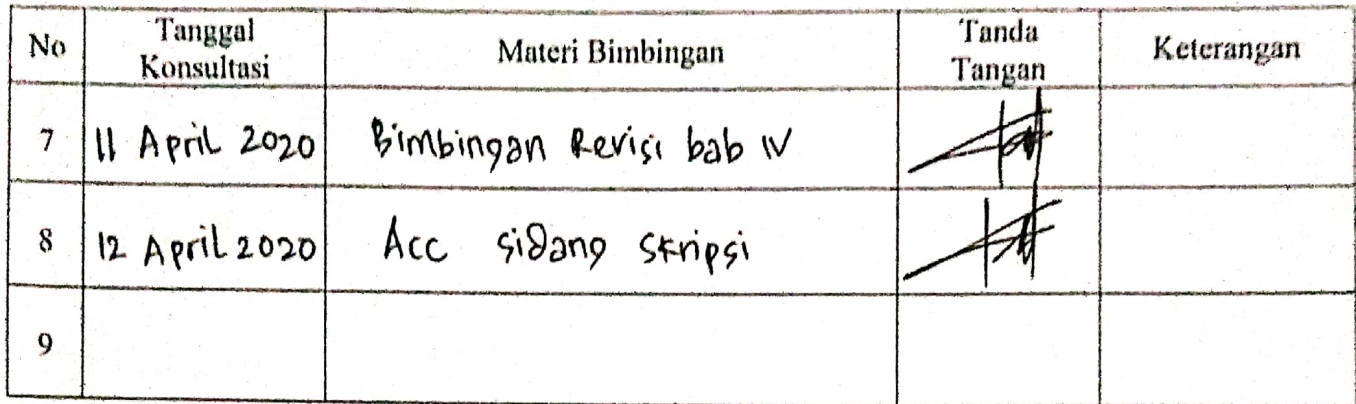 No Tanggal Konsultasi Materi Bimbingan Tanda Tangan Keterangan
7 11 April 2020 Bimbingan Revisi bab IV
8 12 April 2020 Acc sidang skripsi
9